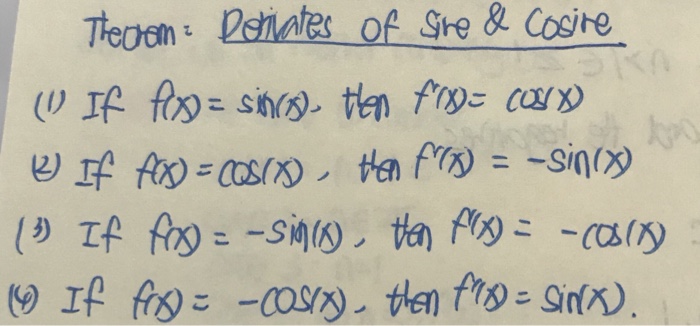 Theorem: Derivates of Sine & Cosine
(1) If f(x) = sin(x), then f'(x) = cos(x)
(2) If f(x) = cos(x), then f'(x) = -sin(x)
(3) If f(x) = -sin(x), then f'(x) = -cos(x)
(4) If f(x) = -cos(x), then f'(x) = sin(x).